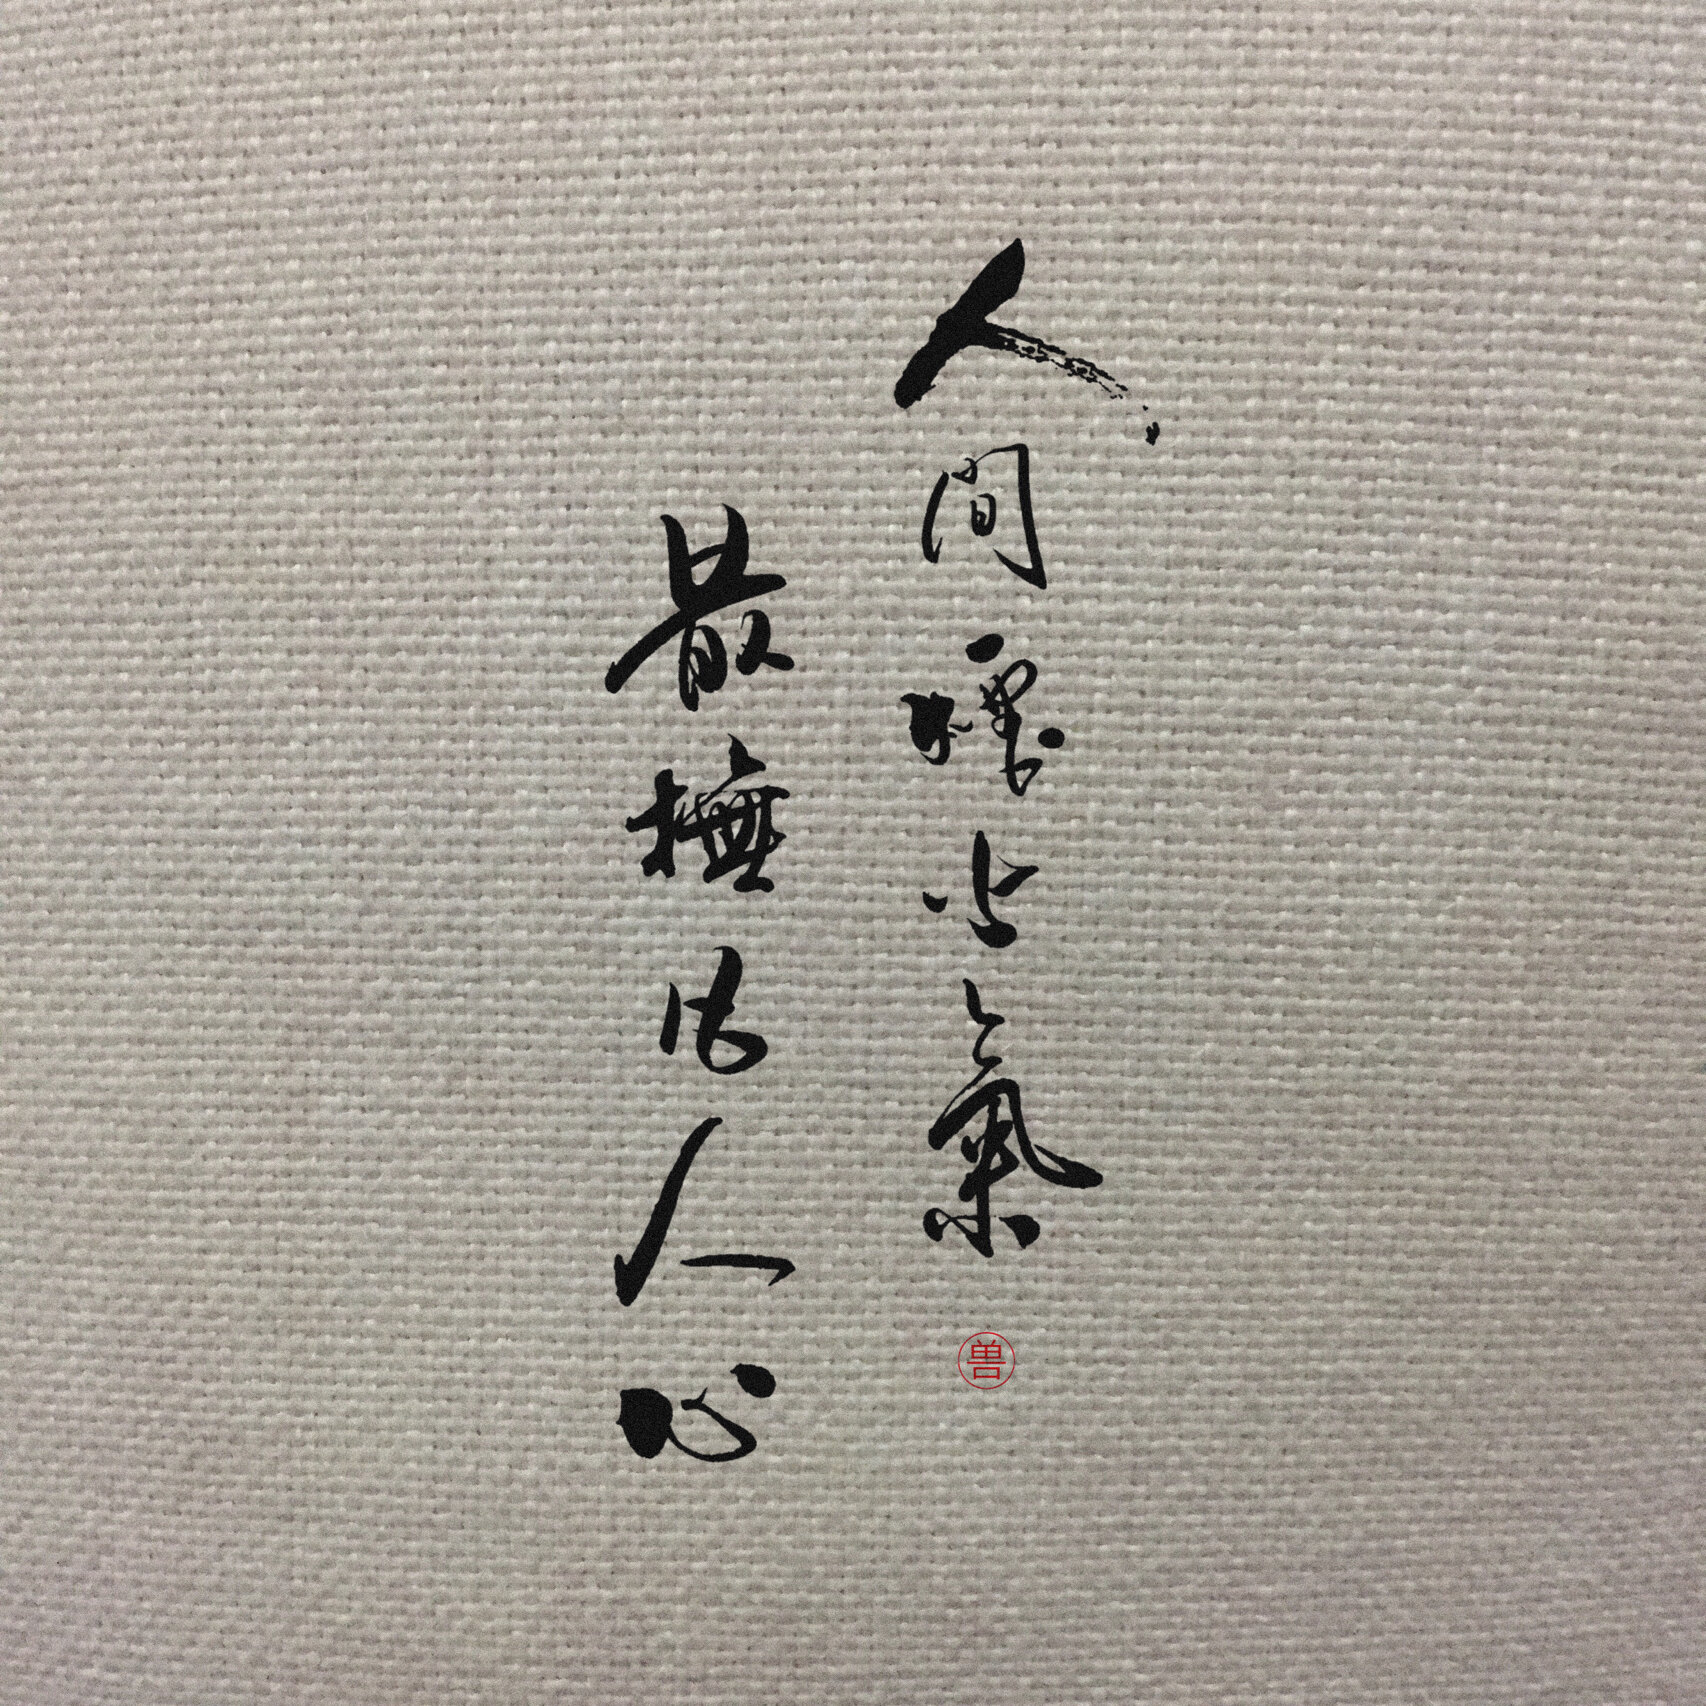 人間煙火氣
兽
最撫凡人心